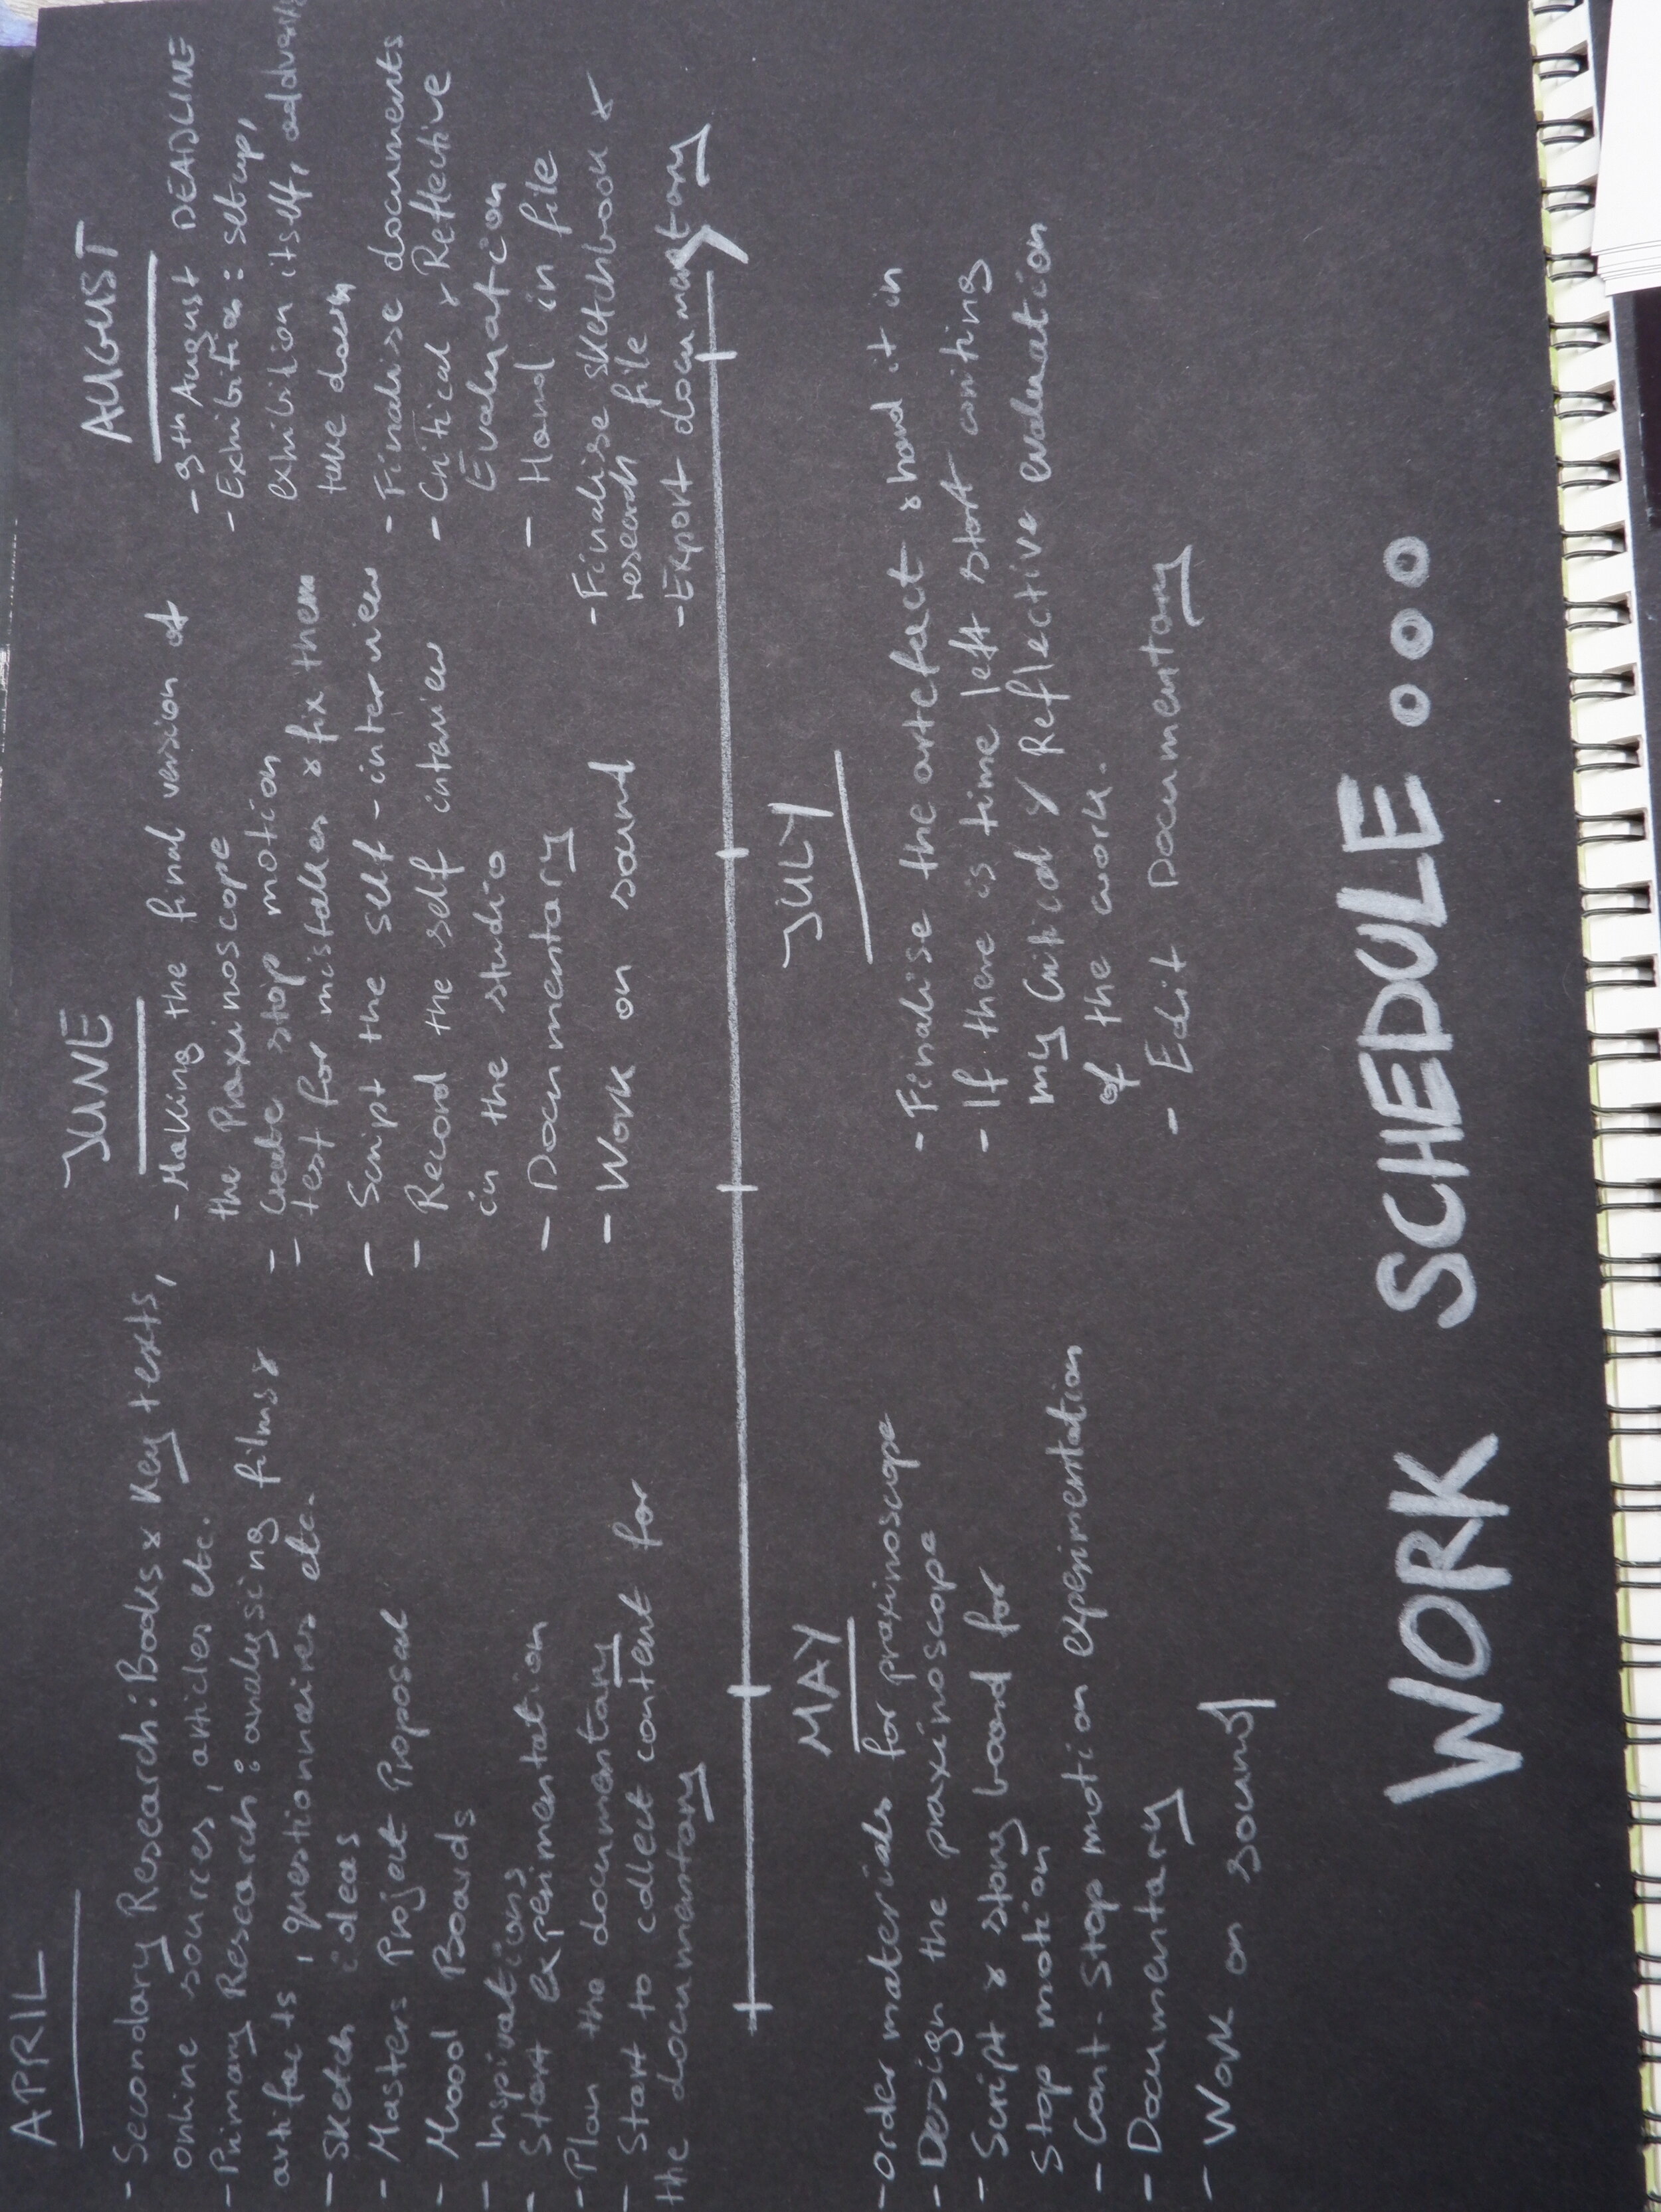 APRIL
- Secondary Research: Books & Key texts,
online sources, articles etc.
- Primary Research: analysing films &
artifacts, questionnaires etc.
- Sketch ideas
- Masters Project Proposal
- Mood Boards
- Inspirations
- Start Experimentation
- Plan the documentary
- Start to collect content for
the documentary
MAY
- order materials for praxinoscope
- Design the praxinoscope
- Script & story board for
stop motion
- Cont. stop motion experimentation
- Documentary
- Work on sound
JUNE
- Making the final version of
the Praxinoscope
- Create stop motion
- test for mistakes & fix them
- Script the self-interview
- Record the self interview
in the studio
- Documentary
- Work on sound
JULY
- Finalise the artefact & hand it in
- If there is time left start writing
my Critical & Reflective evaluation
of the work.
- Edit Documentary
AUGUST
- 9th August DEADLINE
- Exhibition: setup,
exhibition itself,
take down
- Finalise documents
- Critical & Reflective
Evaluation
- Hand in file
- Finalise sketchbook &
research file
- Export documentary
WORK SCHEDULE...